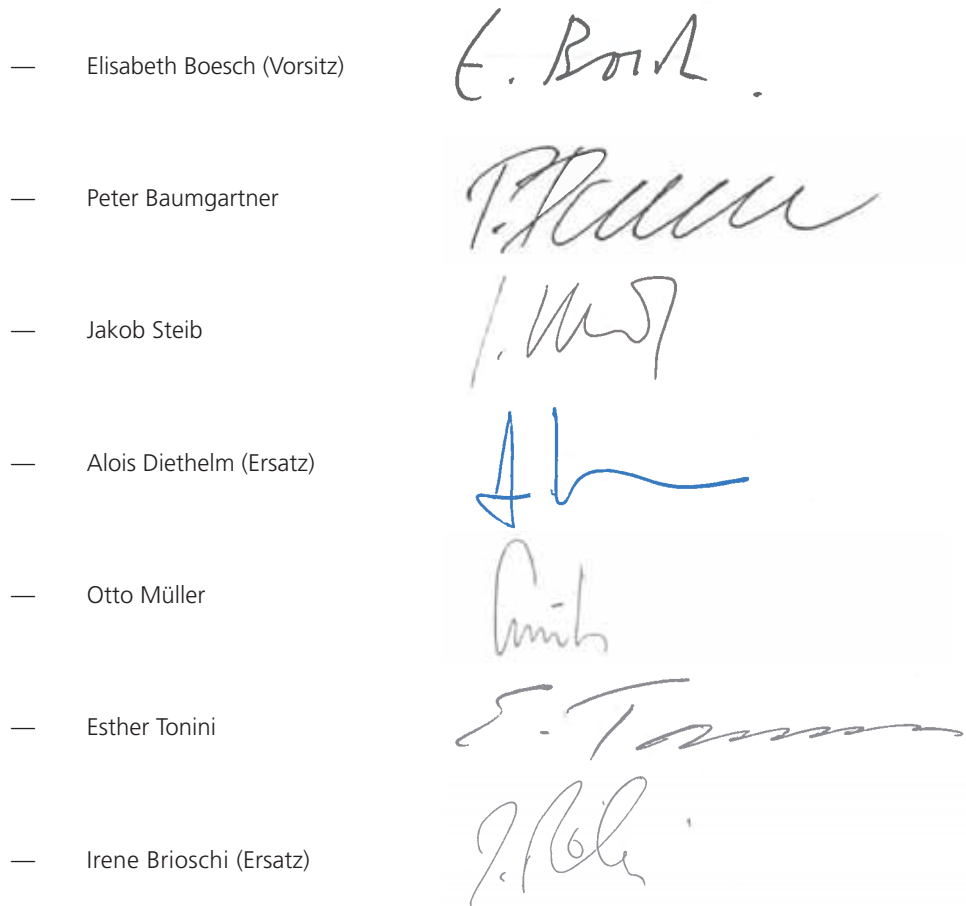 — Elisabeth Boesch (Vorsitz) E. Boesch
— Peter Baumgartner
— Jakob Steib
— Alois Diethelm (Ersatz)
— Otto Müller
— Esther Tonini E. Tonini
— Irene Brioschi (Ersatz)